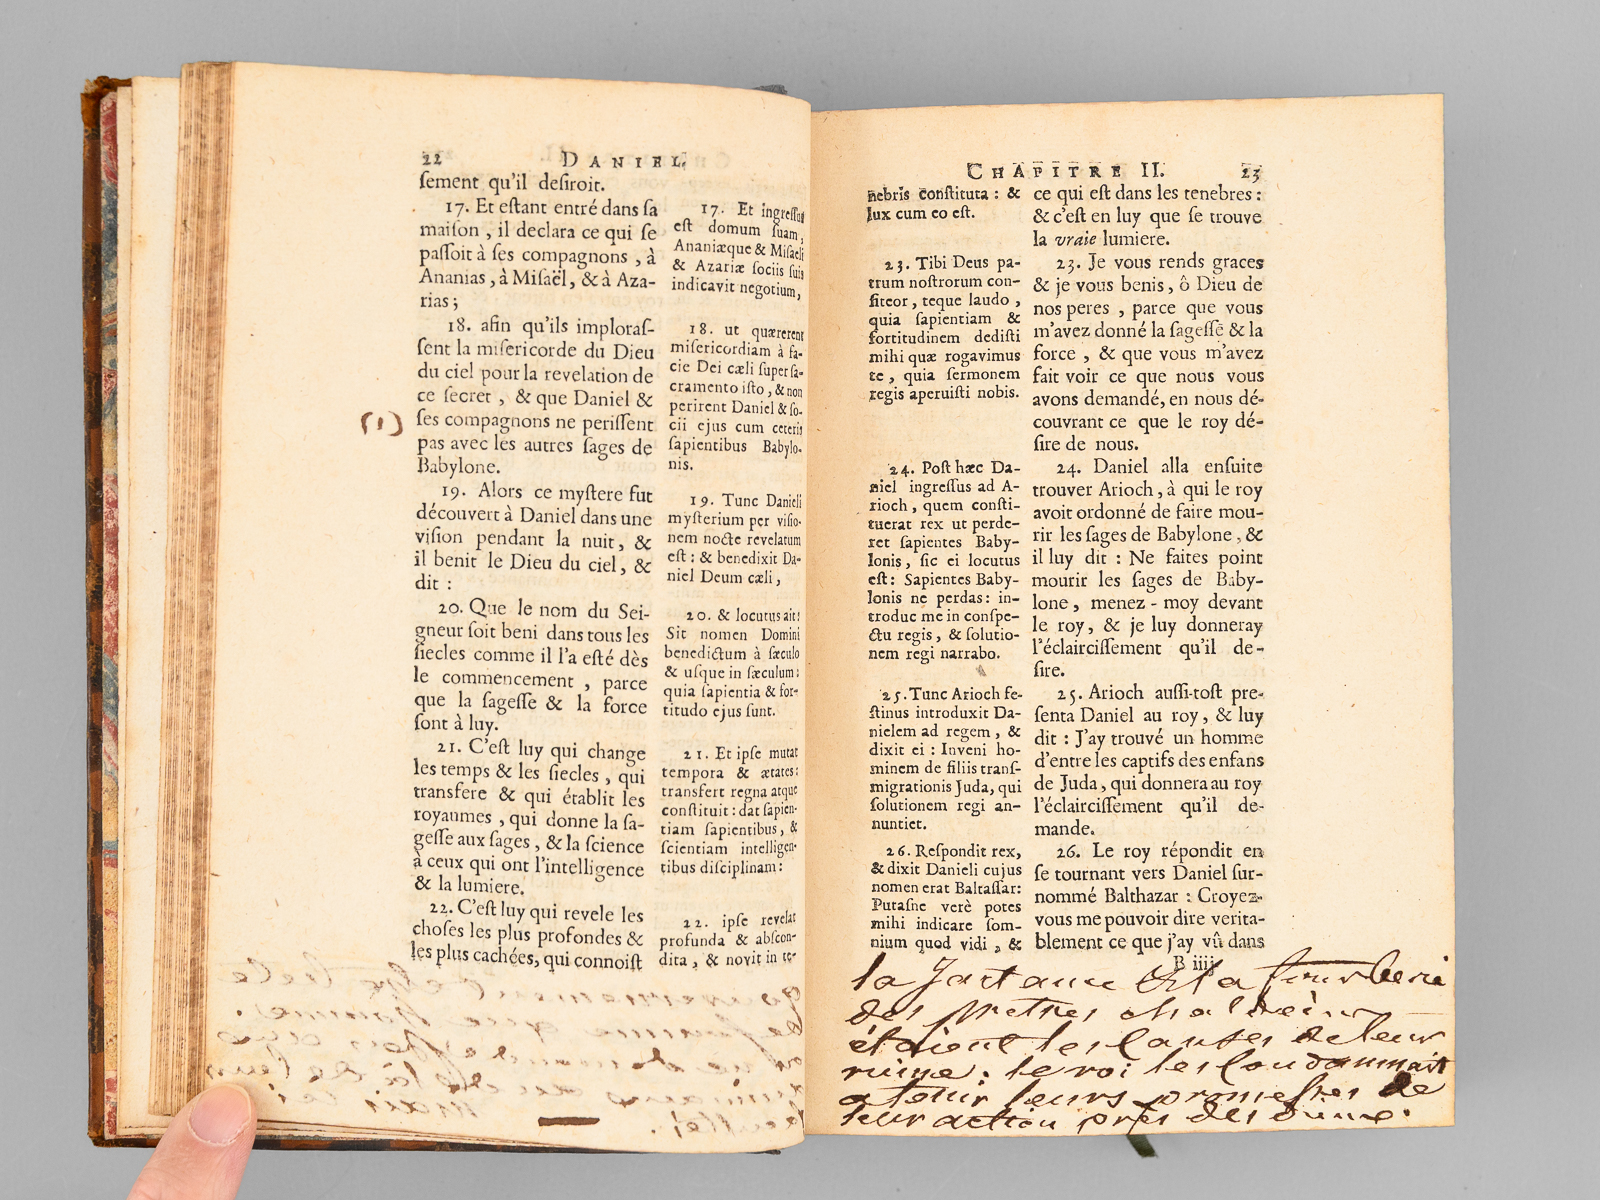 22 DANIEL,
sement qu'il desiroit.
17. Et estant entré dans sa
maison, il declara ce qui se
passoit à ses compagnons, à
Ananias, à Misaël, & à Aza-
rias;
18. afin qu'ils imploras-
sent la misericorde du Dieu
du ciel pour la revelation de
ce secret, & que Daniel &
(1) ses compagnons ne perissent
pas avec les autres sages de
Babylone.
19. Alors ce mystere fut
découvert à Daniel dans une
vision pendant la nuit, &
il benit le Dieu du ciel, &
dit :
20. Que le nom du Sei-
gneur soit beni dans tous les
siecles comme il l'a esté dès
le commencement, parce
que la sagesse & la force
sont à luy.
21. C'est luy qui change
les temps & les siecles, qui
transfere & qui établit les
royaumes, qui donne la sa-
gesse aux sages, & la science
à ceux qui ont l'intelligence
& la lumiere.
22. C'est luy qui revele les
choses les plus profondes &
les plus cachées, qui connoist
17. Et ingressus
est domum suam,
Ananiæque & Misaeli
& Azariæ sociis suis
indicavit negotium,
18. ut quærerent
misericordiam à fa-
cie Dei cæli super sa-
cramento isto, & non
perirent Daniel & so-
cii ejus cum ceteris
sapientibus Babylo-
nis.
19. Tunc Danieli
mysterium per visio-
nem nocte revelatum
est : & benedixit Da-
niel Deum cæli,
20. & locutus ait:
Sit nomen Domini
benedictum à sæculo
& usque in sæculum:
quia sapientia & for-
titudo ejus sunt.
21. Et ipse mutat
tempora & ætates:
transfert regna atque
constituit: dat sapien-
tiam sapientibus, &
scientiam intelligen-
tibus disciplinam:
22. ipse revelat
profunda & abscon-
dita, & novit in te-
CHAPITRE II. 23
nebris constituta: &
lux cum eo est.
23. Tibi Deus pa-
trum nostrorum con-
fiteor, teque laudo,
quia sapientiam &
fortitudinem dedisti
mihi quæ rogavimus
te, quia sermonem
regis aperuisti nobis.
24. Post hæc Da-
niel ingressus ad A-
rioch, quem consti-
tuerat rex ut perde-
ret sapientes Baby-
lonis, sic ei locutus
est: Sapientes Baby-
lonis ne perdas: in-
troduc me in conspe-
ctu regis, & solutio-
nem regi narrabo.
25. Tunc Arioch fe-
stinus introduxit Da-
nielem ad regem, &
dixit ei : Inveni ho-
minem de filiis trans-
migrationis Juda, qui
solutionem regi an-
nuntiet.
26. Respondit rex,
& dixit Danieli cujus
nomen erat Baltassar:
Putasne verè potes
mihi indicare som-
nium quod vidi, &
ce qui est dans les tenebres :
& c'est en luy que se trouve
la vraie lumiere.
23. Je vous rends graces
& je vous benis, ô Dieu de
nos peres, parce que vous
m'avez donné la sagesse & la
force, & que vous m'avez
fait voir ce que nous vous
avons demandé, en nous dé-
couvrant ce que le roy dé-
sire de nous.
24. Daniel alla ensuite
trouver Arioch, à qui le roy
avoit ordonné de faire mou-
rir les sages de Babylone, &
il luy dit : Ne faites point
mourir les sages de Baby-
lone, menez-moy devant
le roy, & je luy donneray
l'éclaircissement qu'il de-
sire.
25. Arioch aussi-tost pre-
senta Daniel au roy, & luy
dit : J'ay trouvé un homme
d'entre les captifs des enfans
de Juda, qui donnera au roy
l'éclaircissement qu'il de-
mande.
26. Le roy répondit en
se tournant vers Daniel sur-
nommé Balthazar : Croyez-
vous me pouvoir dire verita-
blement ce que j'ay vû dans
B iiij
la Jactance et la fourberie
des prêtres chaldéens
étaient les causes de leur
ruine: le roi les condamnait
a tenir leurs promesses de
leur action près des